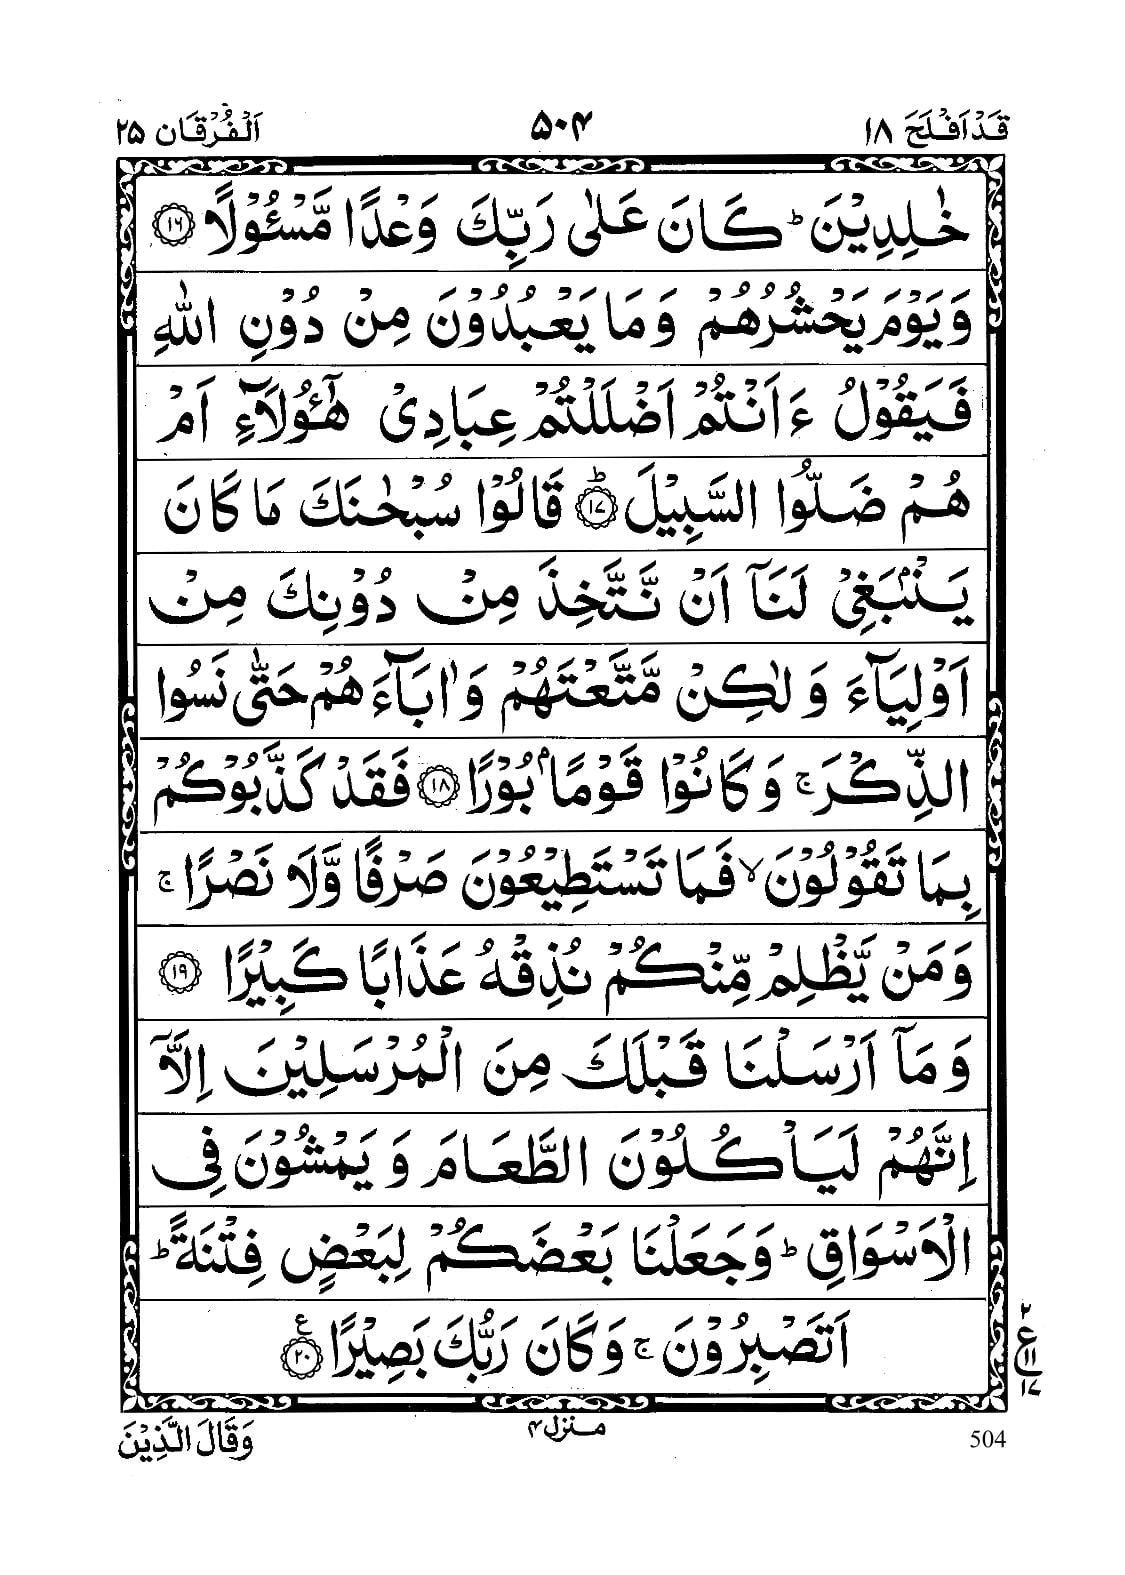 قَدْ اَفْلَحَ ١٨
۵۰۴
اَلْفُرْقَان ٢۵
خٰلِدِيْنَ ؕ كَانَ عَلٰى رَبِّكَ وَعْدًا مَّسْـُٔوْلًا ﴿١٦﴾
وَيَوْمَ يَحْشُرُهُمْ وَمَا يَعْبُدُوْنَ مِنْ دُوْنِ اللّٰهِ
فَيَقُوْلُ ءَاَنْتُمْ اَضْلَلْتُمْ عِبَادِيْ هٰٓؤُلَآءِ اَمْ
هُمْ ضَلُّوا السَّبِيْلَ ؕ﴿١٧﴾ قَالُوْا سُبْحٰنَكَ مَا كَانَ
يَنْۢبَغِيْ لَنَآ اَنْ نَّتَّخِذَ مِنْ دُوْنِكَ مِنْ
اَوْلِيَآءَ وَلٰكِنْ مَّتَّعْتَهُمْ وَاٰبَآءَهُمْ حَتّٰى نَسُوا
الذِّكْرَ ۚ وَكَانُوْا قَوْمًاۢ بُوْرًا ﴿١٨﴾ فَقَدْ كَذَّبُوْكُمْ
بِمَا تَقُوْلُوْنَ ۙ فَمَا تَسْتَطِيْعُوْنَ صَرْفًا وَّلَا نَصْرًا ۚ
وَمَنْ يَّظْلِمْ مِّنْكُمْ نُذِقْهُ عَذَابًا كَبِيْرًا ﴿١٩﴾
وَمَآ اَرْسَلْنَا قَبْلَكَ مِنَ الْمُرْسَلِيْنَ اِلَّآ
اِنَّهُمْ لَيَاْكُلُوْنَ الطَّعَامَ وَيَمْشُوْنَ فِي
الْاَسْوَاقِ ؕ وَجَعَلْنَا بَعْضَكُمْ لِبَعْضٍ فِتْنَةً ؕ
اَتَصْبِرُوْنَ ۚ وَكَانَ رَبُّكَ بَصِيْرًا ﴿٢٠﴾ ع
٢
ع
١١
١٧
504
منزل ۴
وَقَالَ الَّذِيْنَ